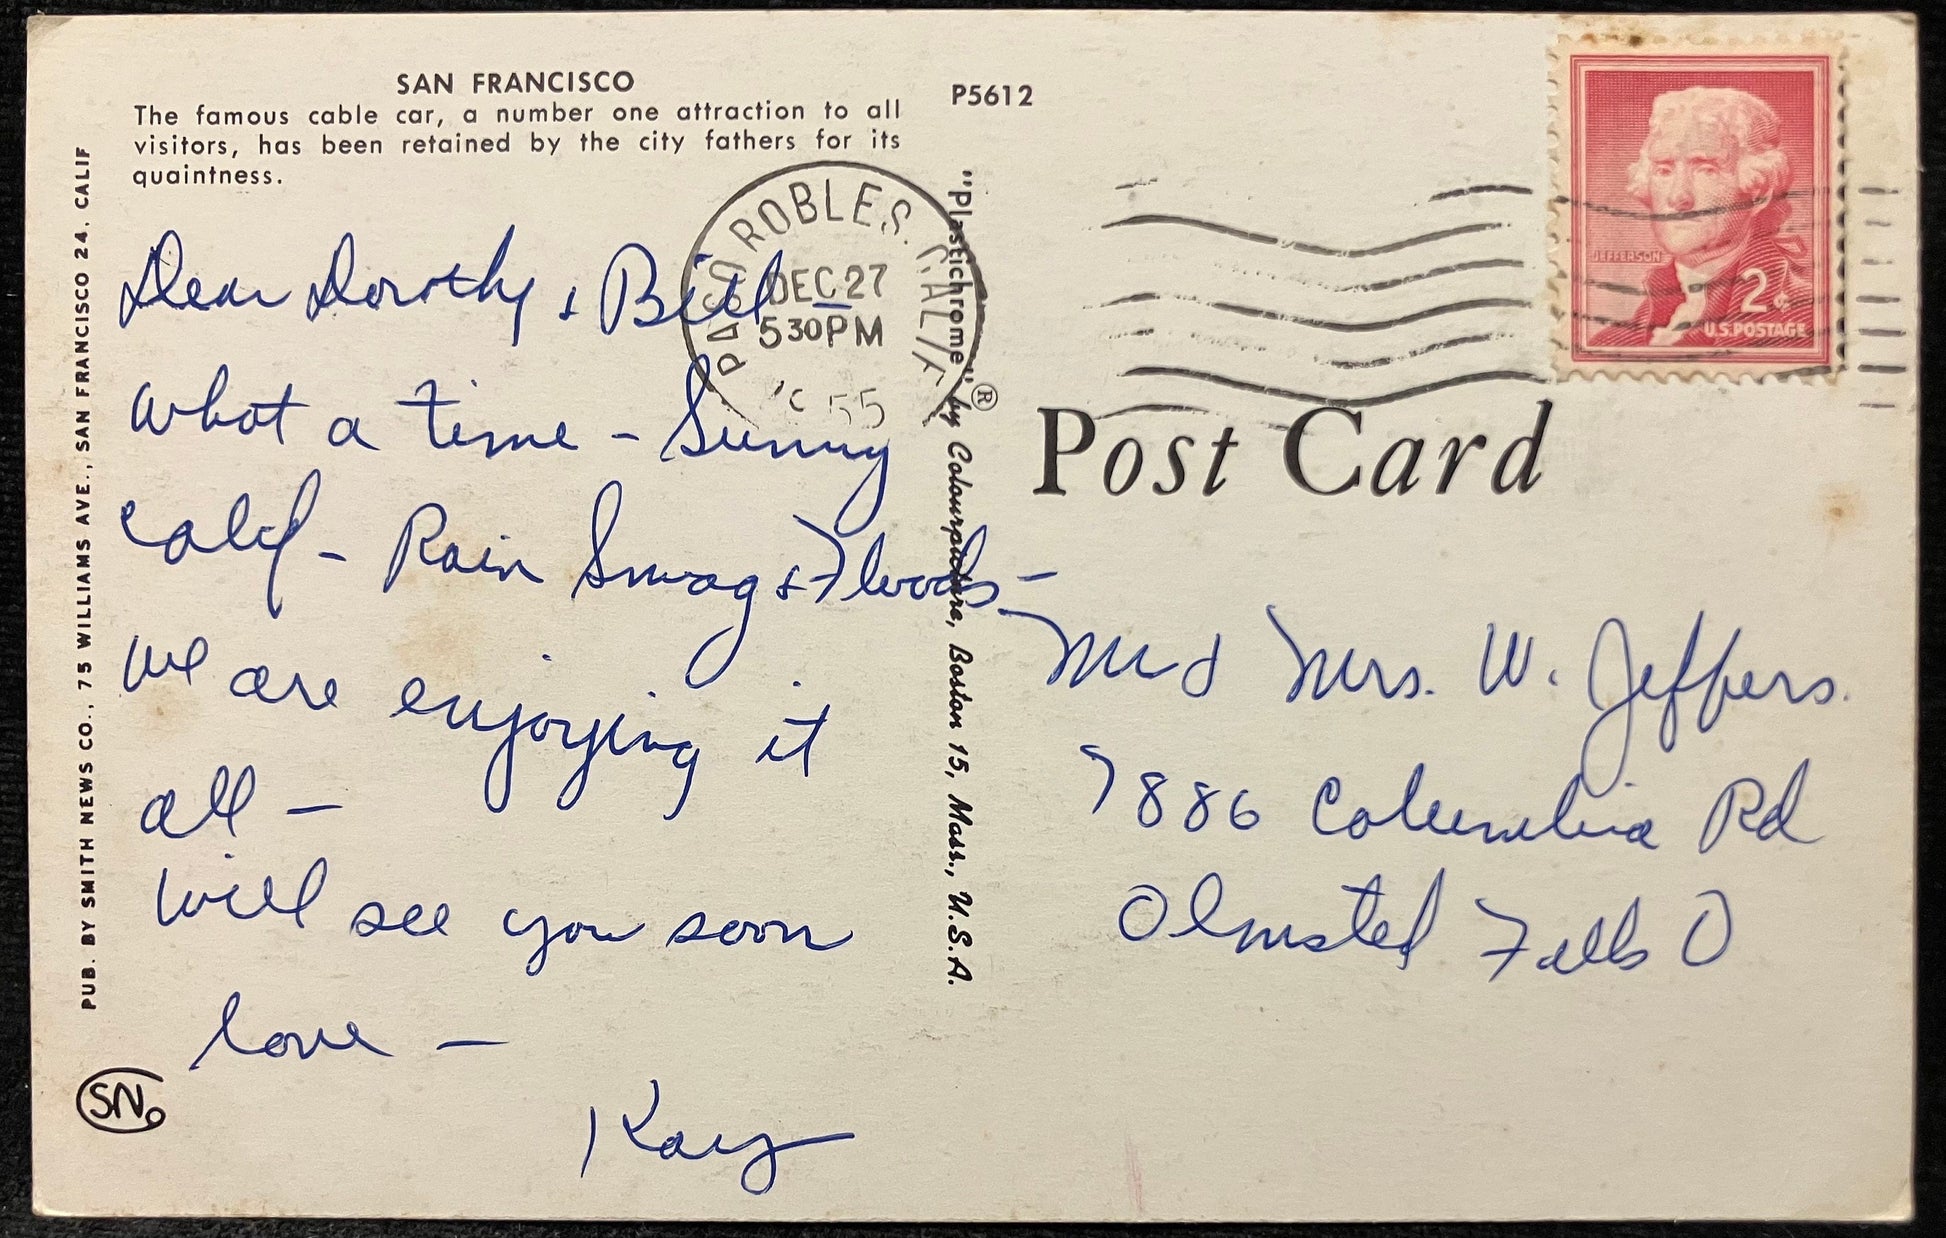 SAN FRANCISCO
The famous cable car, a number one attraction to all
visitors, has been retained by the city fathers for its
quaintness.
P5612
PASO ROBLES. CALIF
DEC 27
530PM
55
JEFFERSON
2¢
U.S. POSTAGE
PUB. BY SMITH NEWS CO., 75 WILLIAMS AVE., SAN FRANCISCO 24, CALIF
SN
Dear Dorothy & Bill -
What a time - Sunny
Calif - Rain Smog & Floods -
We are enjoying it
all -
Will see you soon
Love -
Kay
"Plastichrome"® by Colourpicture, Boston 15, Mass., U.S.A.
Post Card
Mr & Mrs. W. Jeffers.
7886 Columbia Rd
Olmsted Falls O